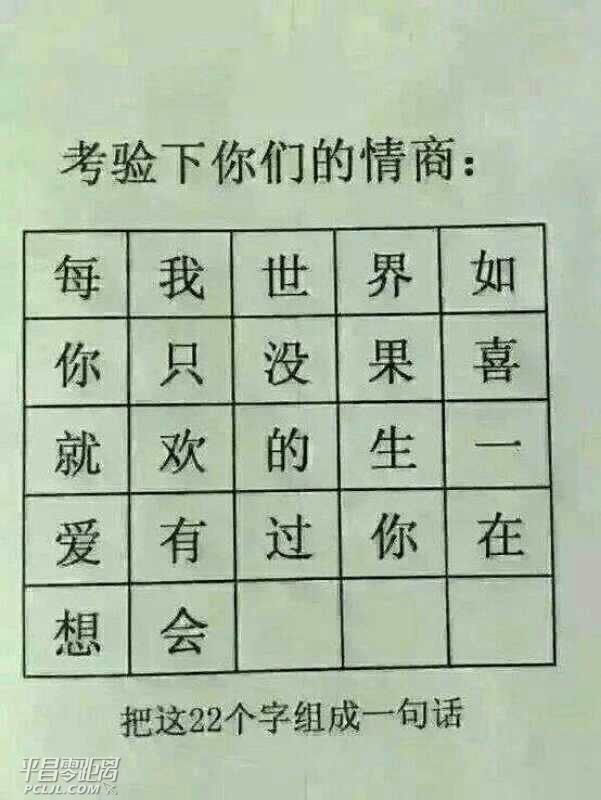 考验下你们的情商：
每 我 世 界 如
你 只 没 果 喜
就 欢 的 生 一
爱 有 过 你 在
想 会
把这22个字组成一句话
平昌零距离
PCLJL.COM